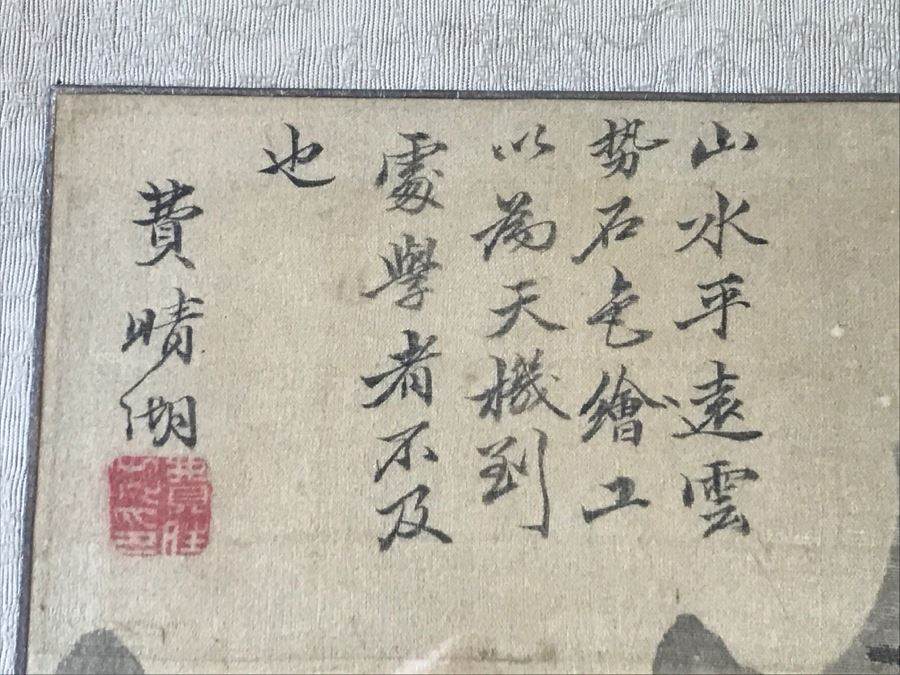 山水平遠雲
勢石色繪工
以為天機到
處學者不及
也
費晴湖